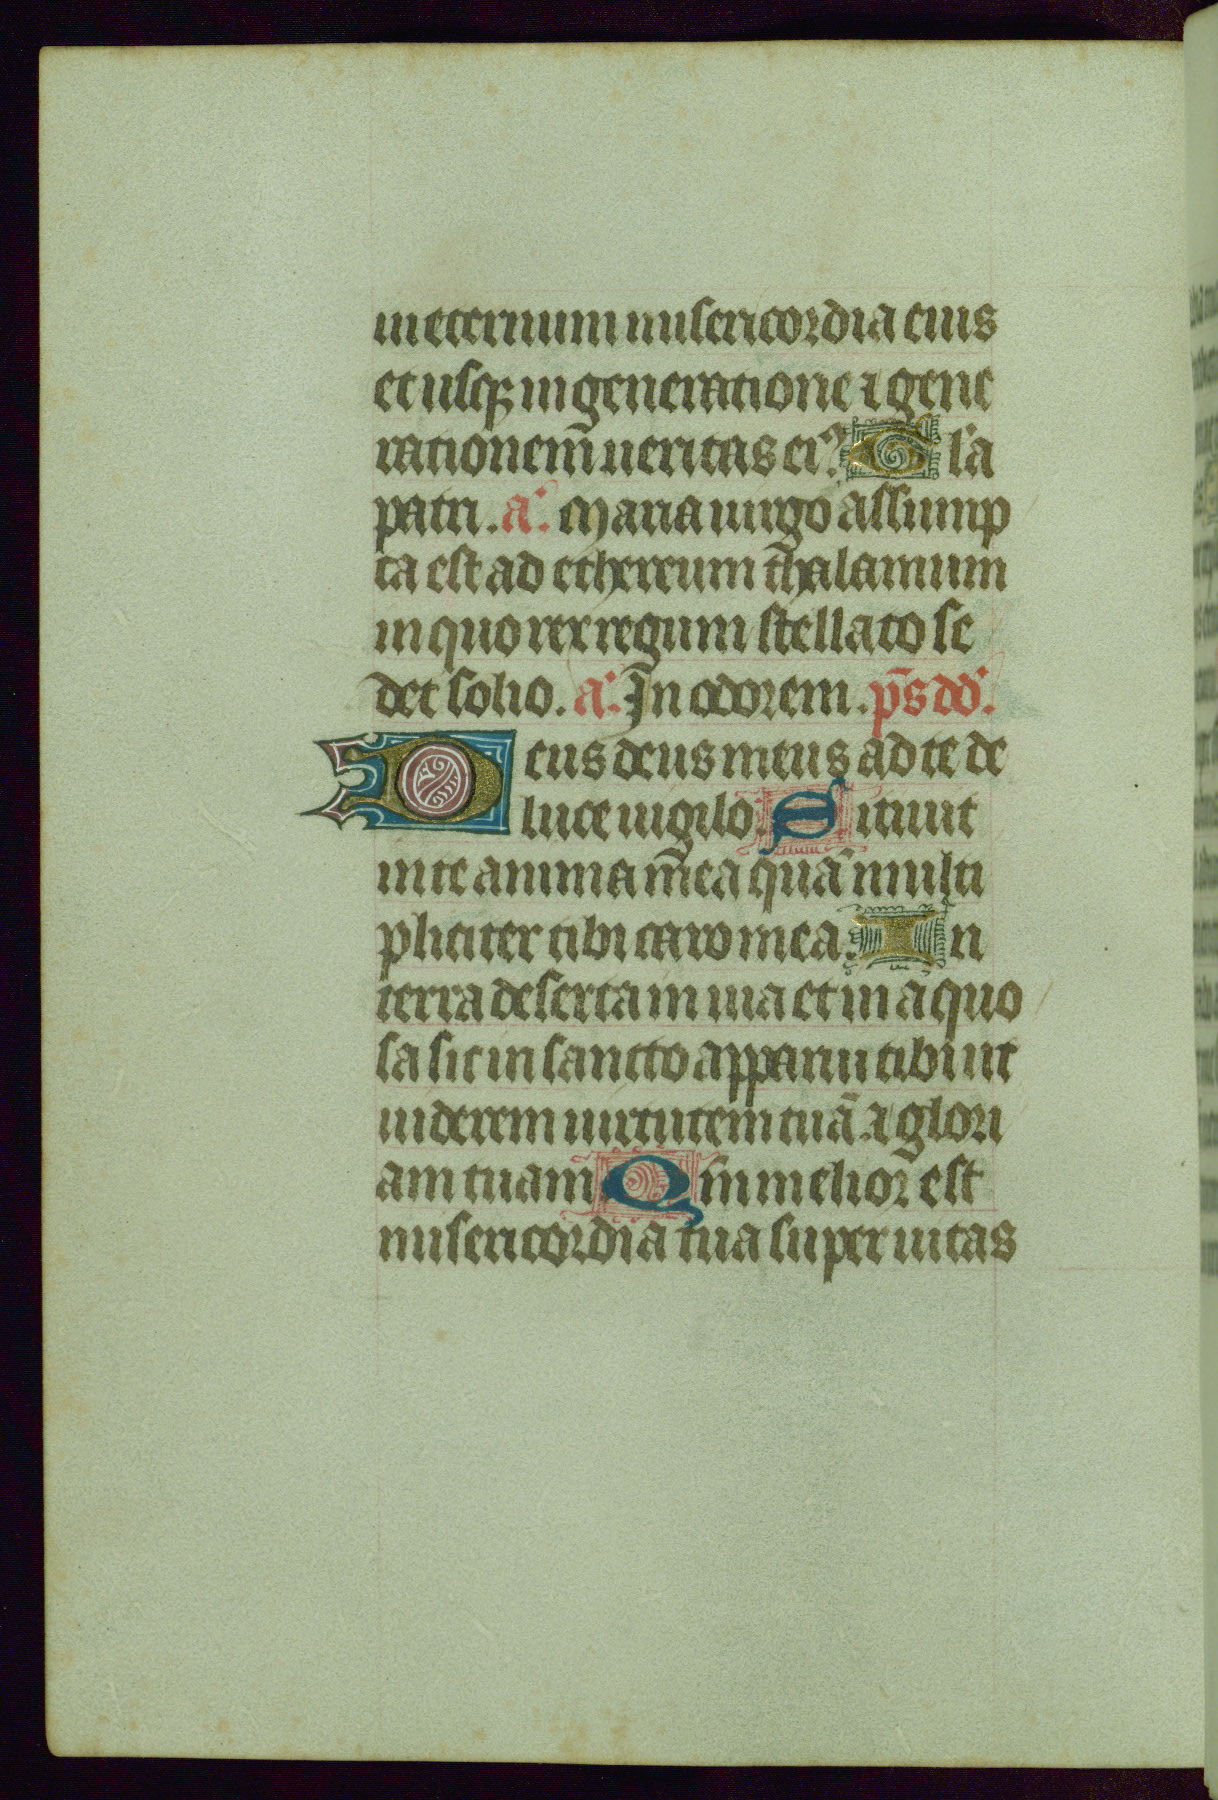 in eternum misericordia eius
et usqꝫ in generatione ⁊ gene
rationem̄ ueritas eiꝰ Gl'a
patri. a'. Maria uirgo assump
ta est ad ethereum thalamum
in quo rex regum stellato se
det solio. a'. In odorem. p̄s dd'.
Deus deus meus ad te de
luce uigilo. Sitiuit
in te anima mea quā multi
pliciter tibi caro mea. In
terra deserta in uia et in aquo
sa sic in sancto apparui tibi ut
uiderem uirtutem tuā ⁊ glori
am tuam Qm̄ melior est
misericordia tua super uitas